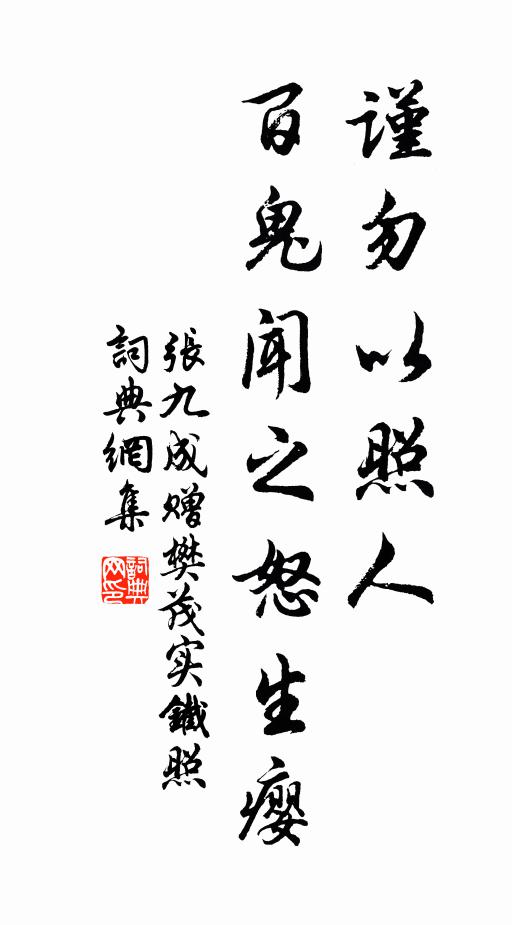 謹勿以照人
百鬼聞之怒生癭
張九成贈樊茂实鐵照
詞典網集
詞典网印